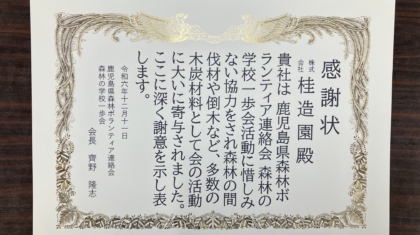 感謝状
株式会社 桂造園 殿
貴社は 鹿児島県森林ボ
ランティア連絡会 森林の
学校一歩会活動に惜しみ
ない協力をされ森林の間
伐材や倒木など、多数の
木炭材料として会の活動
に大いに寄与されました。
ここに深く謝意を示し表
します。
令和六年十二月十一日
鹿児島県森林ボランティア連絡会
森林の学校一歩会
会長 齊野 隆志